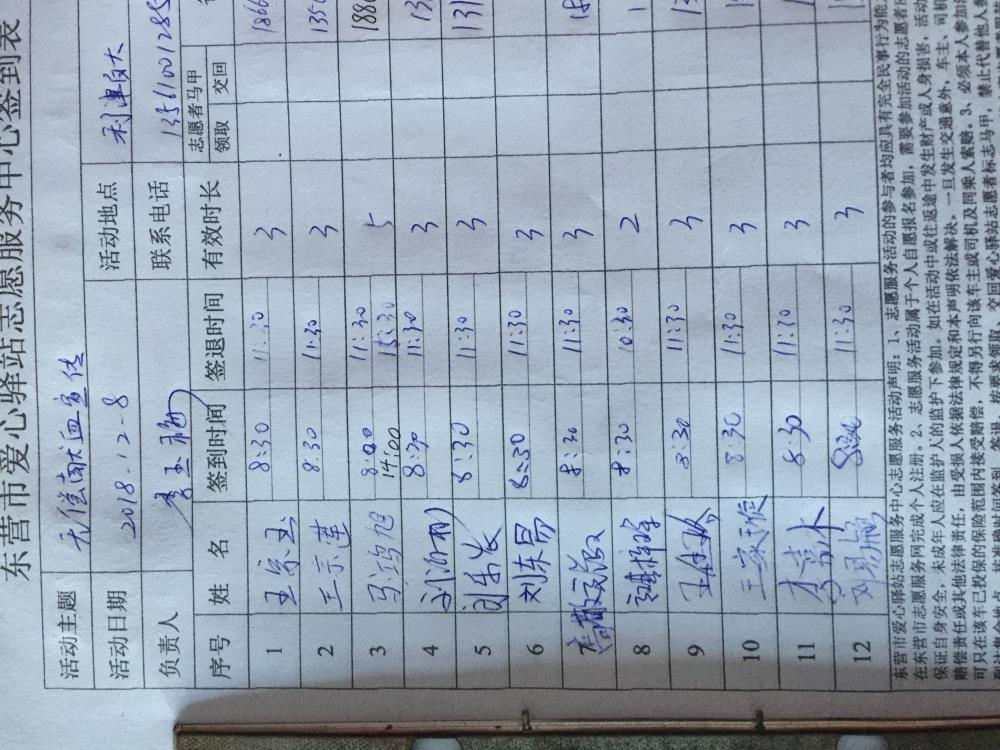 东营市爱心驿站志愿服务中心签到表
活动主题 无偿献血宣传
活动日期 2018.12-8 活动地点 利津百大
负责人 李玉梅 联系电话 13561001285
序号 姓 名 签到时间 签退时间 有效时长 志愿者马甲 领取 交回
1 王宗玉 8:30 11:30 3
2 王宗莲 8:30 11:30 3
3 8:00 11:30 5
14:00 15:30
4 8:30 11:30 3
5 8:30 11:30 3
6 刘东易 8:30 11:30 3
8:30 11:30 3
8 8:30 10:30 2
9 8:30 11:30 3
10 8:30 11:30 3
11 8:30 11:30 3
12 8:30 11:30 3
东营市爱心驿站志愿服务中心志愿服务活动声明:1、志愿服务活动的参与者均应具有完全民事行为能
在东营市志愿服务网完成个人注册。2、志愿服务活动属于个人自愿报名参加,需要参加活动的志愿者应
保证自身安全,未成年人应在监护人的监护下参加。如在活动中或往返途中发生财产或人身损害,活动
赔偿责任或其他法律责任,由受损人依据法律规定和本声明依法解决。一旦发生交通意外,车主、司机
可只在该车已投保的保险范围内接受赔偿,不得另行向该车主或司机及同乘人索赔。3、必须本人参加活
按准确时间签到、签退,按要求领取、交回爱心驿站志愿者标志马甲,禁止代替他人参